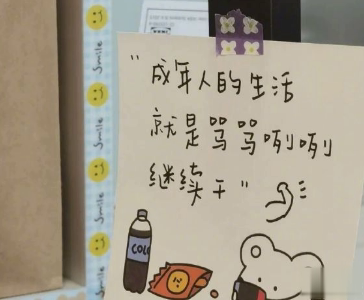 "成年人的生活
就是骂骂咧咧
继续干"
COLA
smile
smile
smile
smile